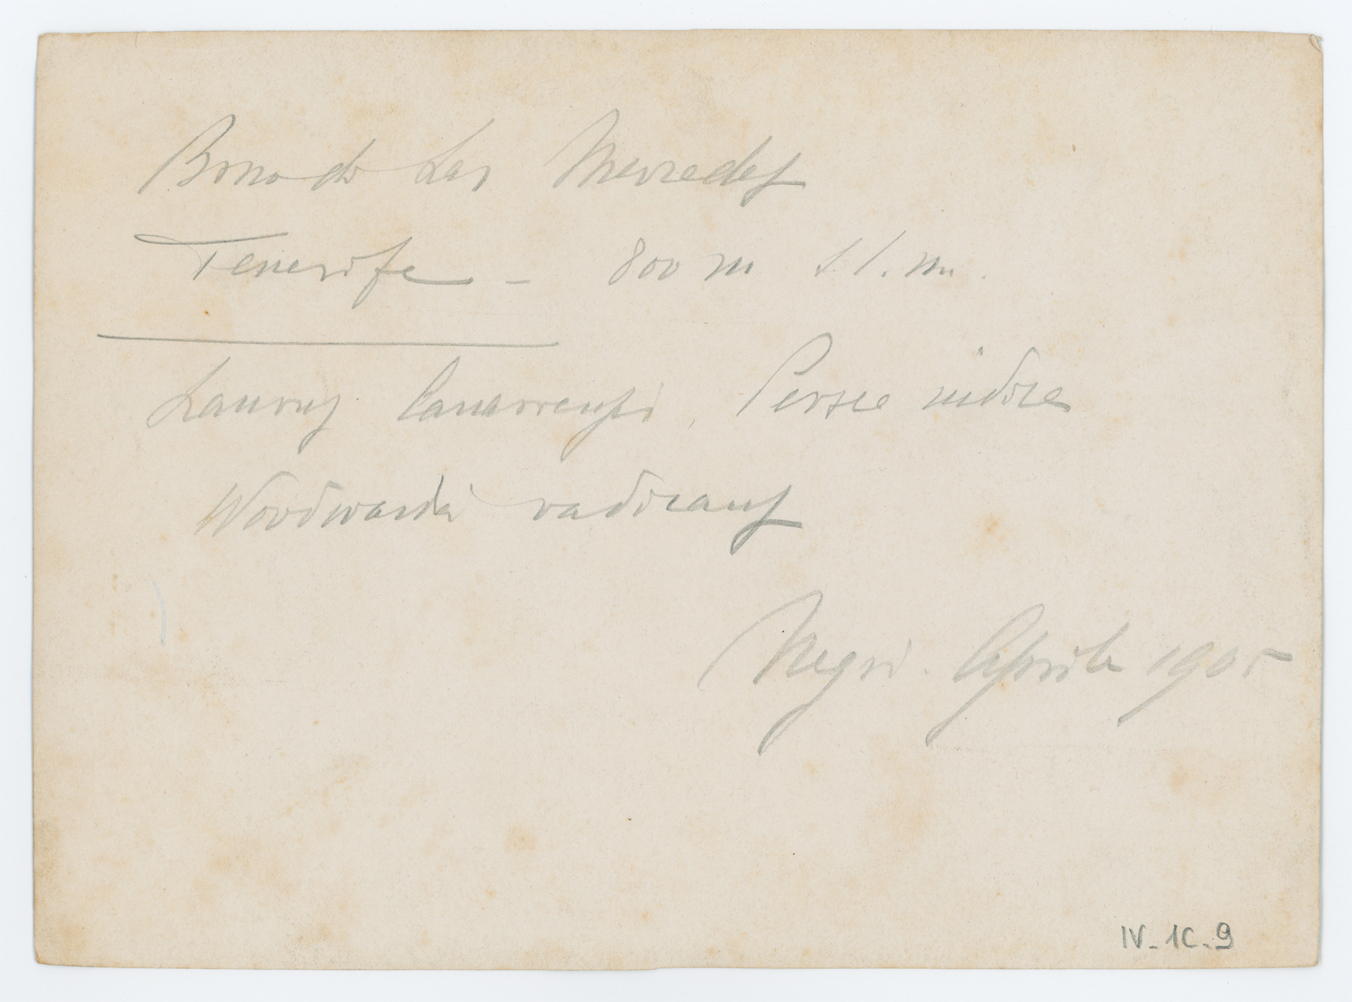 Bosco de Las Mercedes
Tenerife - 800 m s. l. m.
Laurus Canariensis, Persee indica
Woodwardia radicans
Negri. Aprile 1905
IV-1C-9